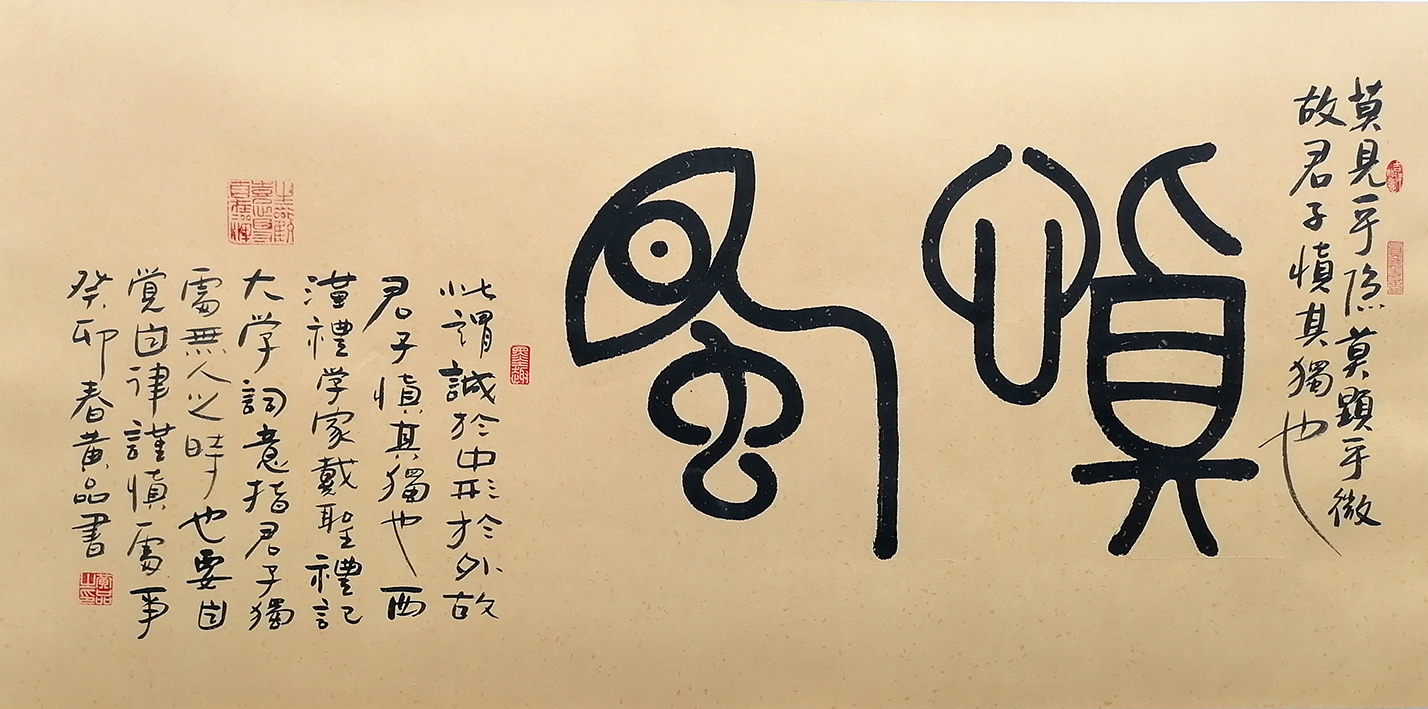 莫見乎隐莫顕乎微
故君子慎其獨也
慎獨
此謂誠於中形於外故
君子慎其獨也西
漢禮学家戴聖禮記
大学詞意指君子獨
處無人之時也要自
覚自律謹慎處事
癸卯春黄品書